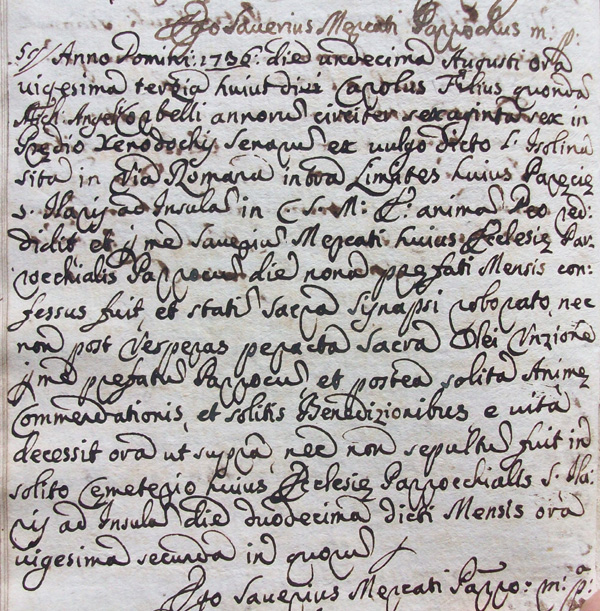 Ego Saverius Mercati Parrochus m. p:
Anno Domini: 1736: die undecima Augusti ora
vigesima terzia huius diei Carolus Filius quondã
Angeli Corbelli annorũ circiter sexaginta sex in
Predio Xenodochij Senarũ ex vulgo dicto L'Isolina
sita in Via Romana intra Limites huius Parecię
S. Ilarij ad Insulã in C. S. M: E: animã Deo red:
didit et p̱ me Saveriũ Mercati huius Ecclesię Par-
rocchialis Parrocũ die nona prefati Mensis con-
fessus fuit, et statĩ Sacra Sijnapsi roborato, nec
non post Vesperas peracta Sacra Olei Unzione
p̱ me prefatũ Parrocũ, et postea solita Animę
Commendationis, et solitis Benedizionibus e vita
decessit ora ut supra, nec non sepultũ fuit in
solito Cemeterio huius Ecclesię Parrocchialis S. Ila-
rij ad Insulã die duodecima dicti Mensis ora
vigesima secunda in quorũ
Ego Saverius Mercati Parro: m: p: